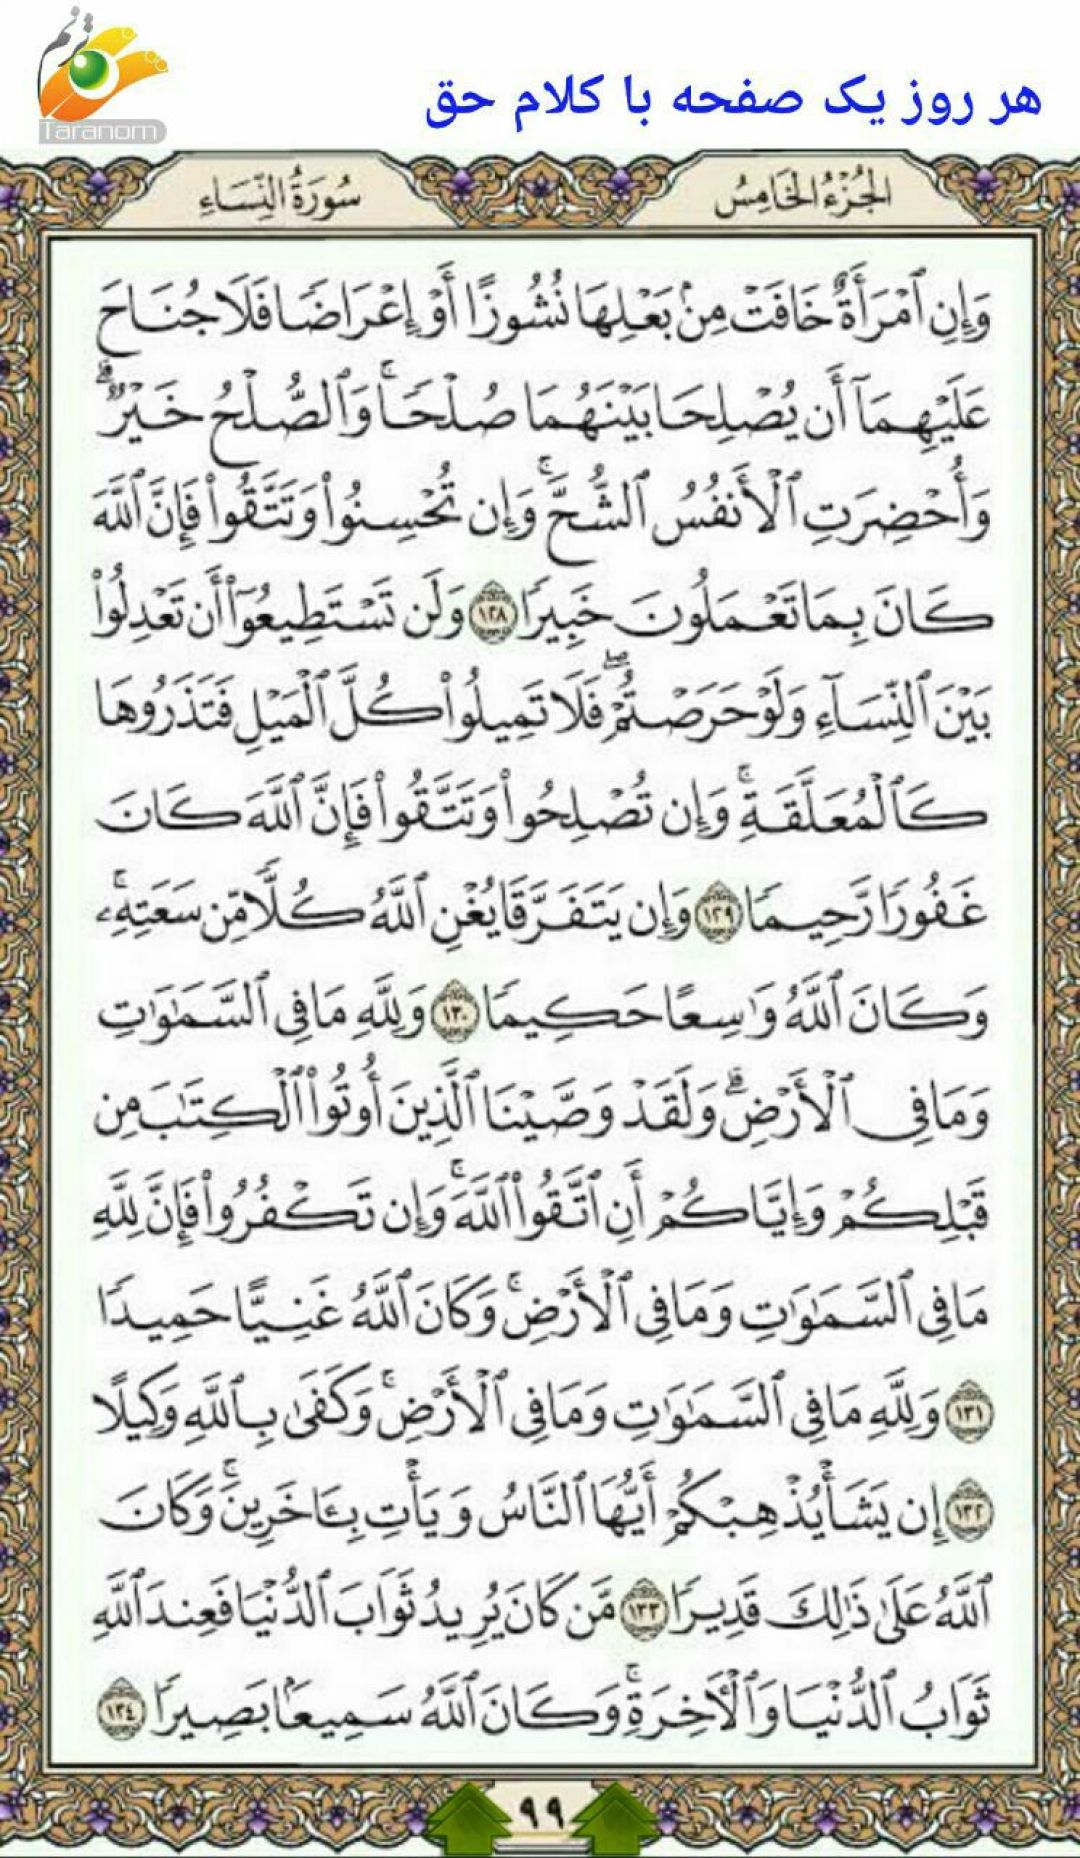 ترنم
Taranom
هر روز یک صفحه با کلام حق
الجُزْءُ الخَامِسُ
سُورَةُ النِّسَاءِ
وَإِنِ ٱمْرَأَةٌ خَافَتْ مِنۢ بَعْلِهَا نُشُوزًا أَوْ إِعْرَاضًا فَلَا جُنَاحَ
عَلَيْهِمَآ أَن يُصْلِحَا بَيْنَهُمَا صُلْحًا ۚ وَٱلصُّلْحُ خَيْرٌ ۗ
وَأُحْضِرَتِ ٱلْأَنفُسُ ٱلشُّحَّ ۚ وَإِن تُحْسِنُوا۟ وَتَتَّقُوا۟ فَإِنَّ ٱللَّهَ
كَانَ بِمَا تَعْمَلُونَ خَبِيرًا ١٢٨ وَلَن تَسْتَطِيعُوٓا۟ أَن تَعْدِلُوا۟
بَيْنَ ٱلنِّسَآءِ وَلَوْ حَرَصْتُمْ ۖ فَلَا تَمِيلُوا۟ كُلَّ ٱلْمَيْلِ فَتَذَرُوهَا
كَٱلْمُعَلَّقَةِ ۚ وَإِن تُصْلِحُوا۟ وَتَتَّقُوا۟ فَإِنَّ ٱللَّهَ كَانَ
غَفُورًا رَّحِيمًا ١٢٩ وَإِن يَتَفَرَّقَا يُغْنِ ٱللَّهُ كُلًّا مِّن سَعَتِهِۦ ۚ
وَكَانَ ٱللَّهُ وَٰسِعًا حَكِيمًا ١٣٠ وَلِلَّهِ مَا فِى ٱلسَّمَٰوَٰتِ
وَمَا فِى ٱلْأَرْضِ ۗ وَلَقَدْ وَصَّيْنَا ٱلَّذِينَ أُوتُوا۟ ٱلْكِتَٰبَ مِن
قَبْلِكُمْ وَإِيَّاكُمْ أَنِ ٱتَّقُوا۟ ٱللَّهَ ۚ وَإِن تَكْفُرُوا۟ فَإِنَّ لِلَّهِ
مَا فِى ٱلسَّمَٰوَٰتِ وَمَا فِى ٱلْأَرْضِ ۚ وَكَانَ ٱللَّهُ غَنِيًّا حَمِيدًا
١٣١ وَلِلَّهِ مَا فِى ٱلسَّمَٰوَٰتِ وَمَا فِى ٱلْأَرْضِ ۚ وَكَفَىٰ بِٱللَّهِ وَكِيلًا
١٣٢ إِن يَشَأْ يُذْهِبْكُمْ أَيُّهَا ٱلنَّاسُ وَيَأْتِ بِـَٔاخَرِينَ ۚ وَكَانَ
ٱللَّهُ عَلَىٰ ذَٰلِكَ قَدِيرًا ١٣٣ مَّن كَانَ يُرِيدُ ثَوَابَ ٱلدُّنْيَا فَعِندَ ٱللَّهِ
ثَوَابُ ٱلدُّنْيَا وَٱلْـَٔاخِرَةِ ۚ وَكَانَ ٱللَّهُ سَمِيعًۢا بَصِيرًا ١٣٤
٩٩